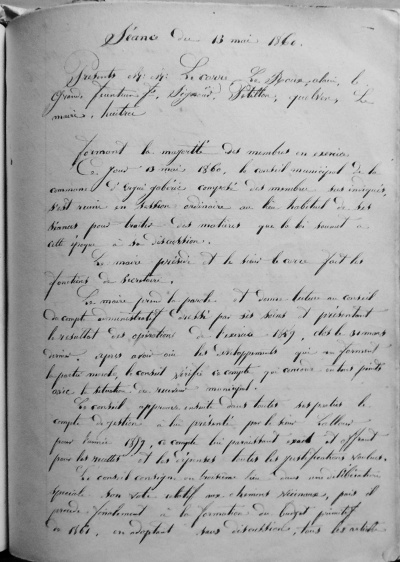 Séance du 13 mai 1860.
Présents M. M. Le corre, Le Roux, alain, le
Grand, feunteun J., Signour, Pétillon, quéléven, Le
maire,
formant la majorité des membres en exercice.
Ce jour 13 mai 1860, le conseil municipal de la
commune d'Ergué gabéric composé des membres sus indiqués,
s'est réuni en session ordinaire au lieu habituel de ses
séances pour traiter des matières que la loi soumet à
cette époque à sa discussion.
Le maire préside et le sieur le corre fait les
fonctions de secrétaire.
Le maire prend la parole et donne lecture au conseil
du compte administratif dressé par ses soins et présentant
le résultat des opérations de l'exercice 1859, clos le 31 mars
dernier. Après avoir ouï les développements qui en forment
la partie morale, le conseil vérifie ce compte qui concorde en tous points
avec la situation du receveur municipal.
Le conseil approuve ensuite dans toutes ses parties le
compte de gestion à lui présenté par le sieur
pour l'année 1859, ce compte lui paraissant exact et offrant
pour les recettes et les dépenses toutes les justifications voulues.
Le conseil consigne en troisième lieu dans une délibération
spéciale son vote relatif aux chemins vicinaux, puis il
procède finalement à la formation du budget primitif
de 1861, en adoptant sans discussion, tous les articles